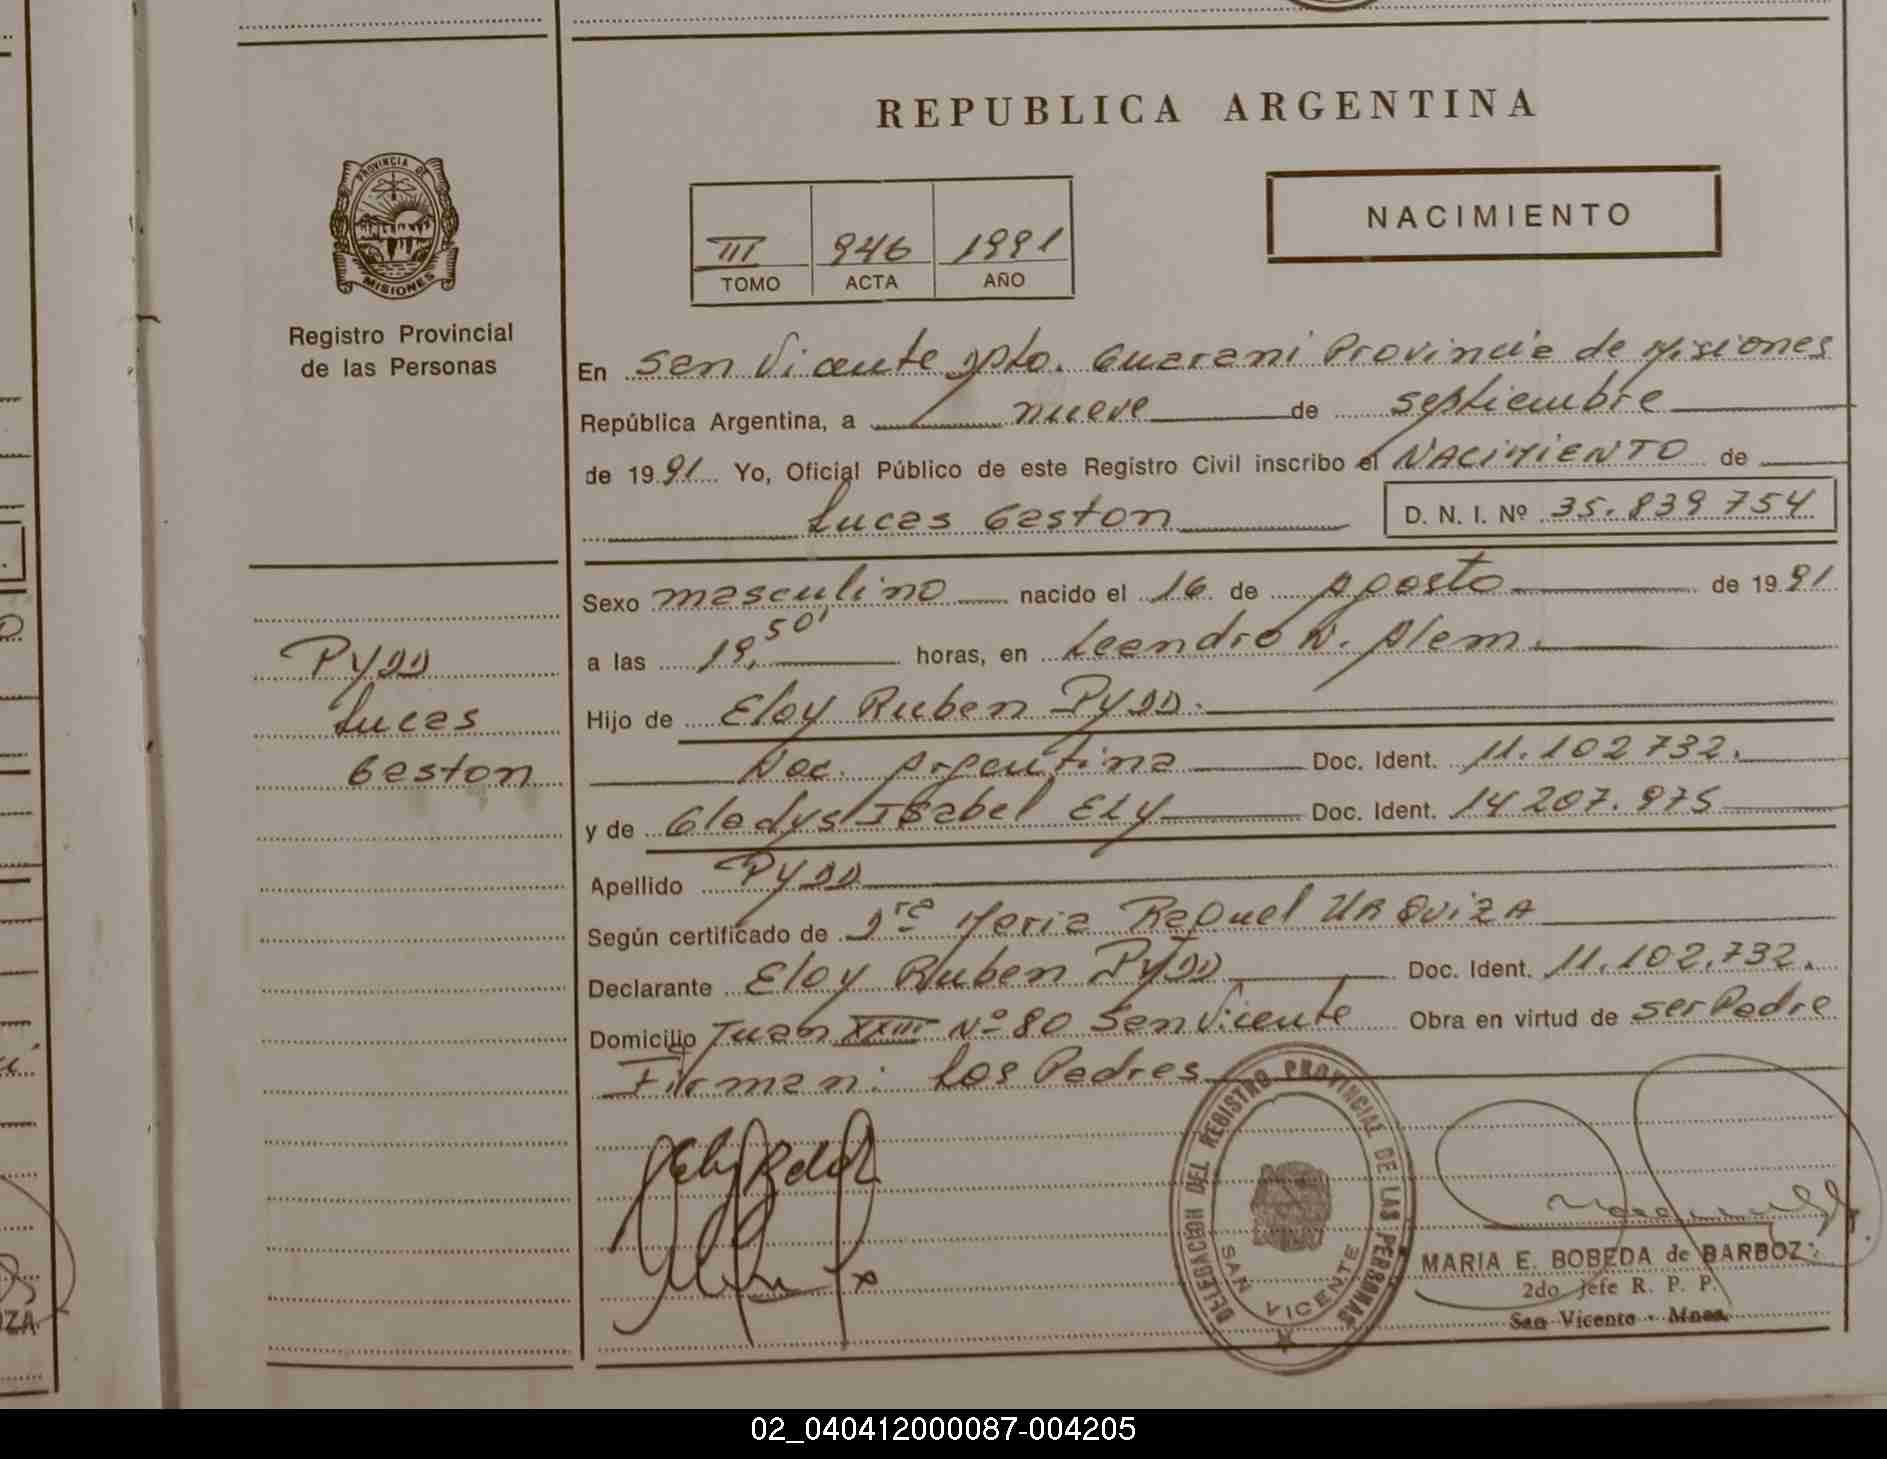 REPUBLICA ARGENTINA
PROVINCIA DE MISIONES
Registro Provincial
de las Personas
NACIMIENTO
III 946 1991
TOMO ACTA AÑO
En San Vicente Dpto. Guarani Provincia de Misiones
República Argentina, a nueve de septiembre
de 1991 Yo, Oficial Público de este Registro Civil inscribo el NACIMIENTO de
Lucas Gaston D. N. I. Nº 35.839 754
Sexo masculino nacido el 16 de Agosto de 1991
a las 19,50' horas, en Leandro N. Alem.
Hijo de Eloy Ruben PYDD.
Nac. Argentina Doc. Ident. 11.102 732.
y de Gladys Isabel ELY Doc. Ident. 14 207.975
Apellido PYDD
Según certificado de Dra Maria Raquel URQUIZA
Declarante Eloy Ruben PYDD Doc. Ident. 11.102.732.
Domicilio Juan XXIII Nº 80 San Vicente Obra en virtud de ser Padre
Firman: los Padres
PYDD
Lucas
Gaston
DELEGACION DEL REGISTRO PROVINCIAL DE LAS PERSONAS
SAN VICENTE
MARIA E. BOBEDA de BARBOZ
2do Jefe R. P. P.
San Vicente - Mnes.
OZA
02_040412000087-004205